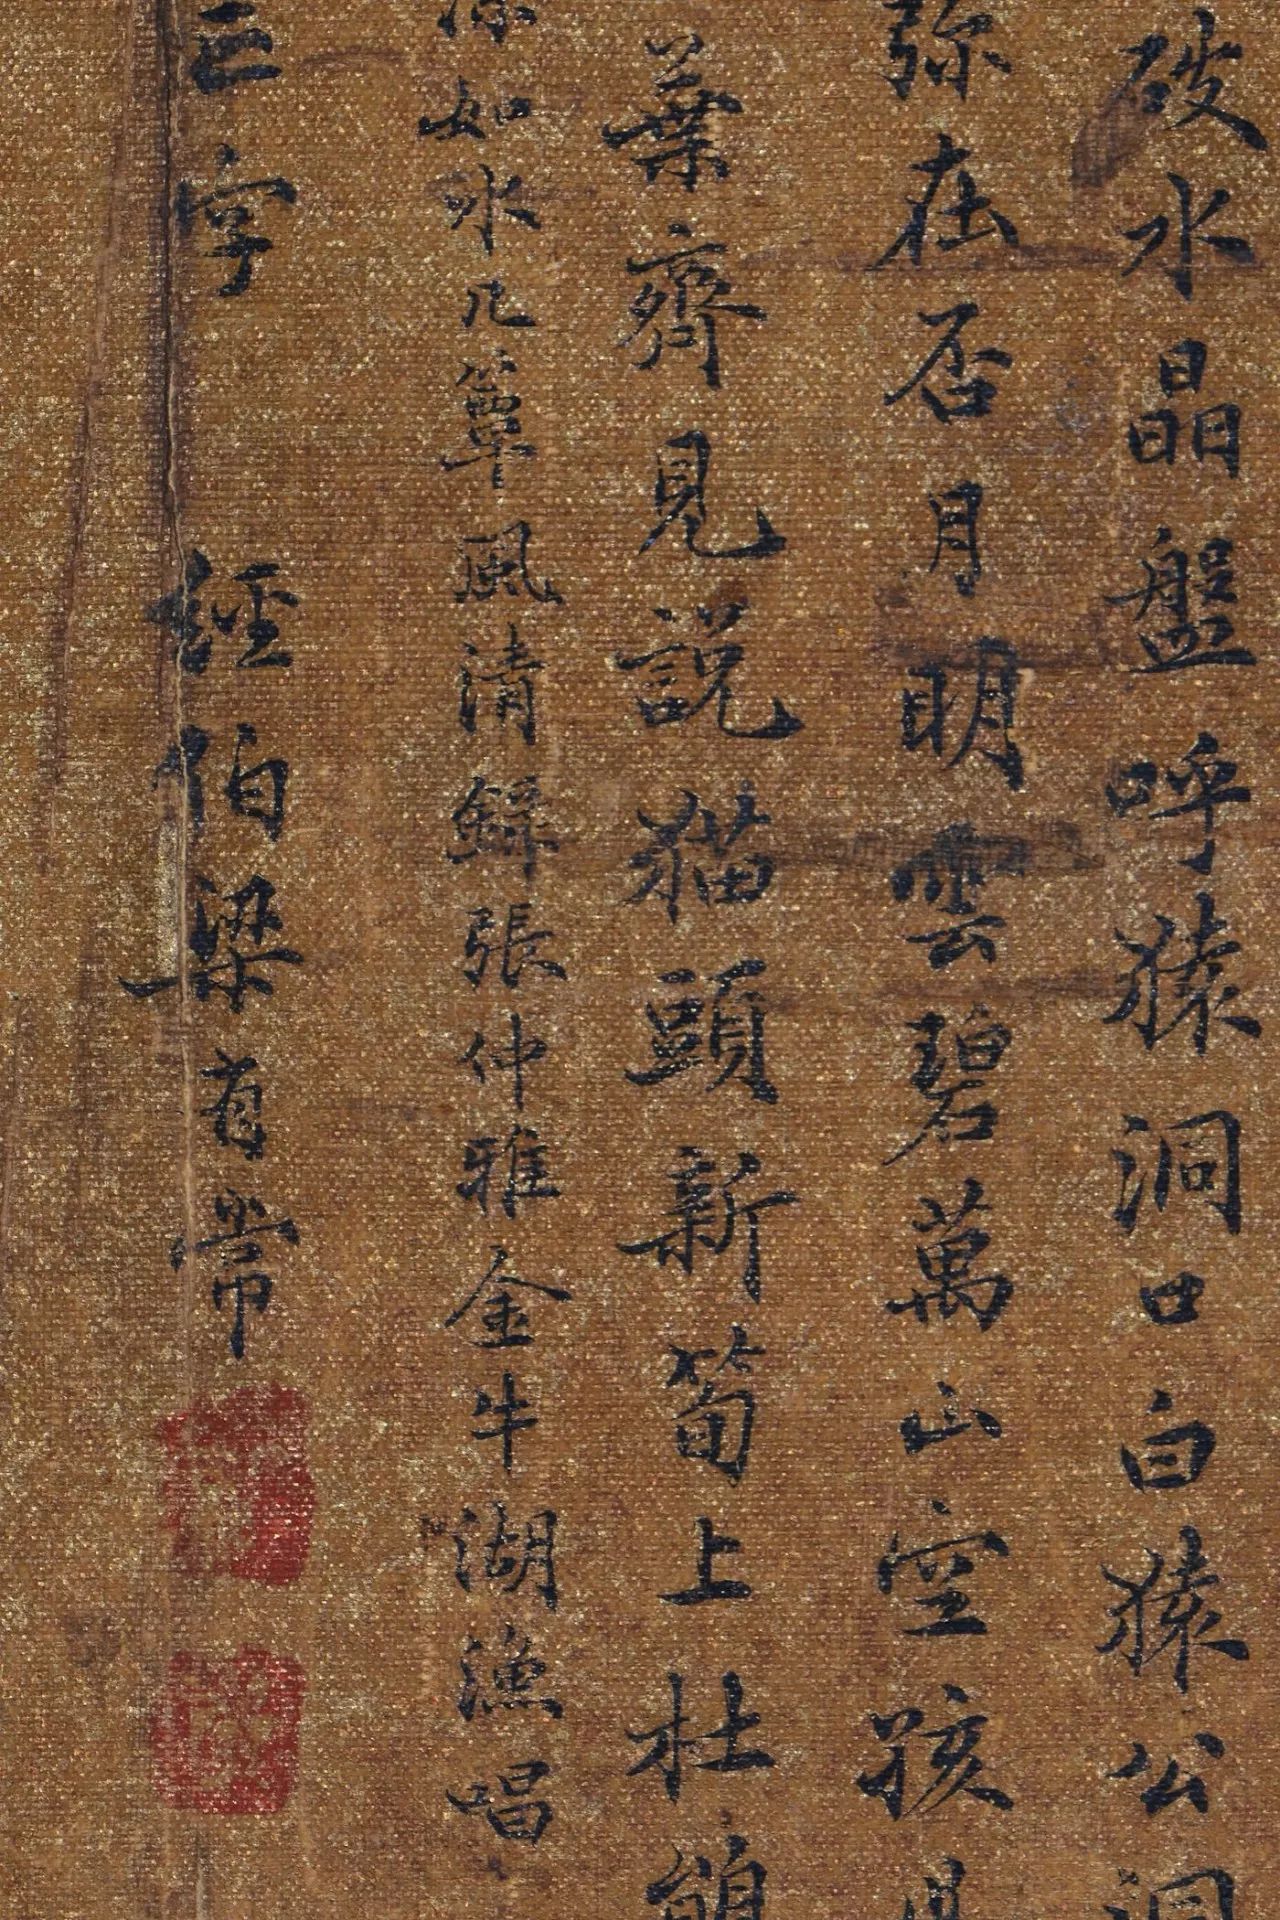 破水晶盤呼猿洞口白猿公洞
弥在否月明雲碧萬山空猿
葉齊見説猫頭新筍上杜鵑
如水几簟風清録張仲雅金牛湖漁唱
三字 經伯梁肯常